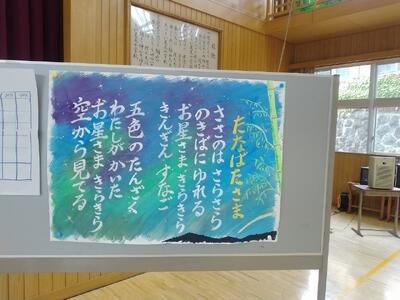 たなばたさま
ささのは さらさら
のきばに ゆれる
お星さま きらきら
きんぎん すなご
五色の たんざく
わたしが かいた
お星さま きらきら
空から 見てる